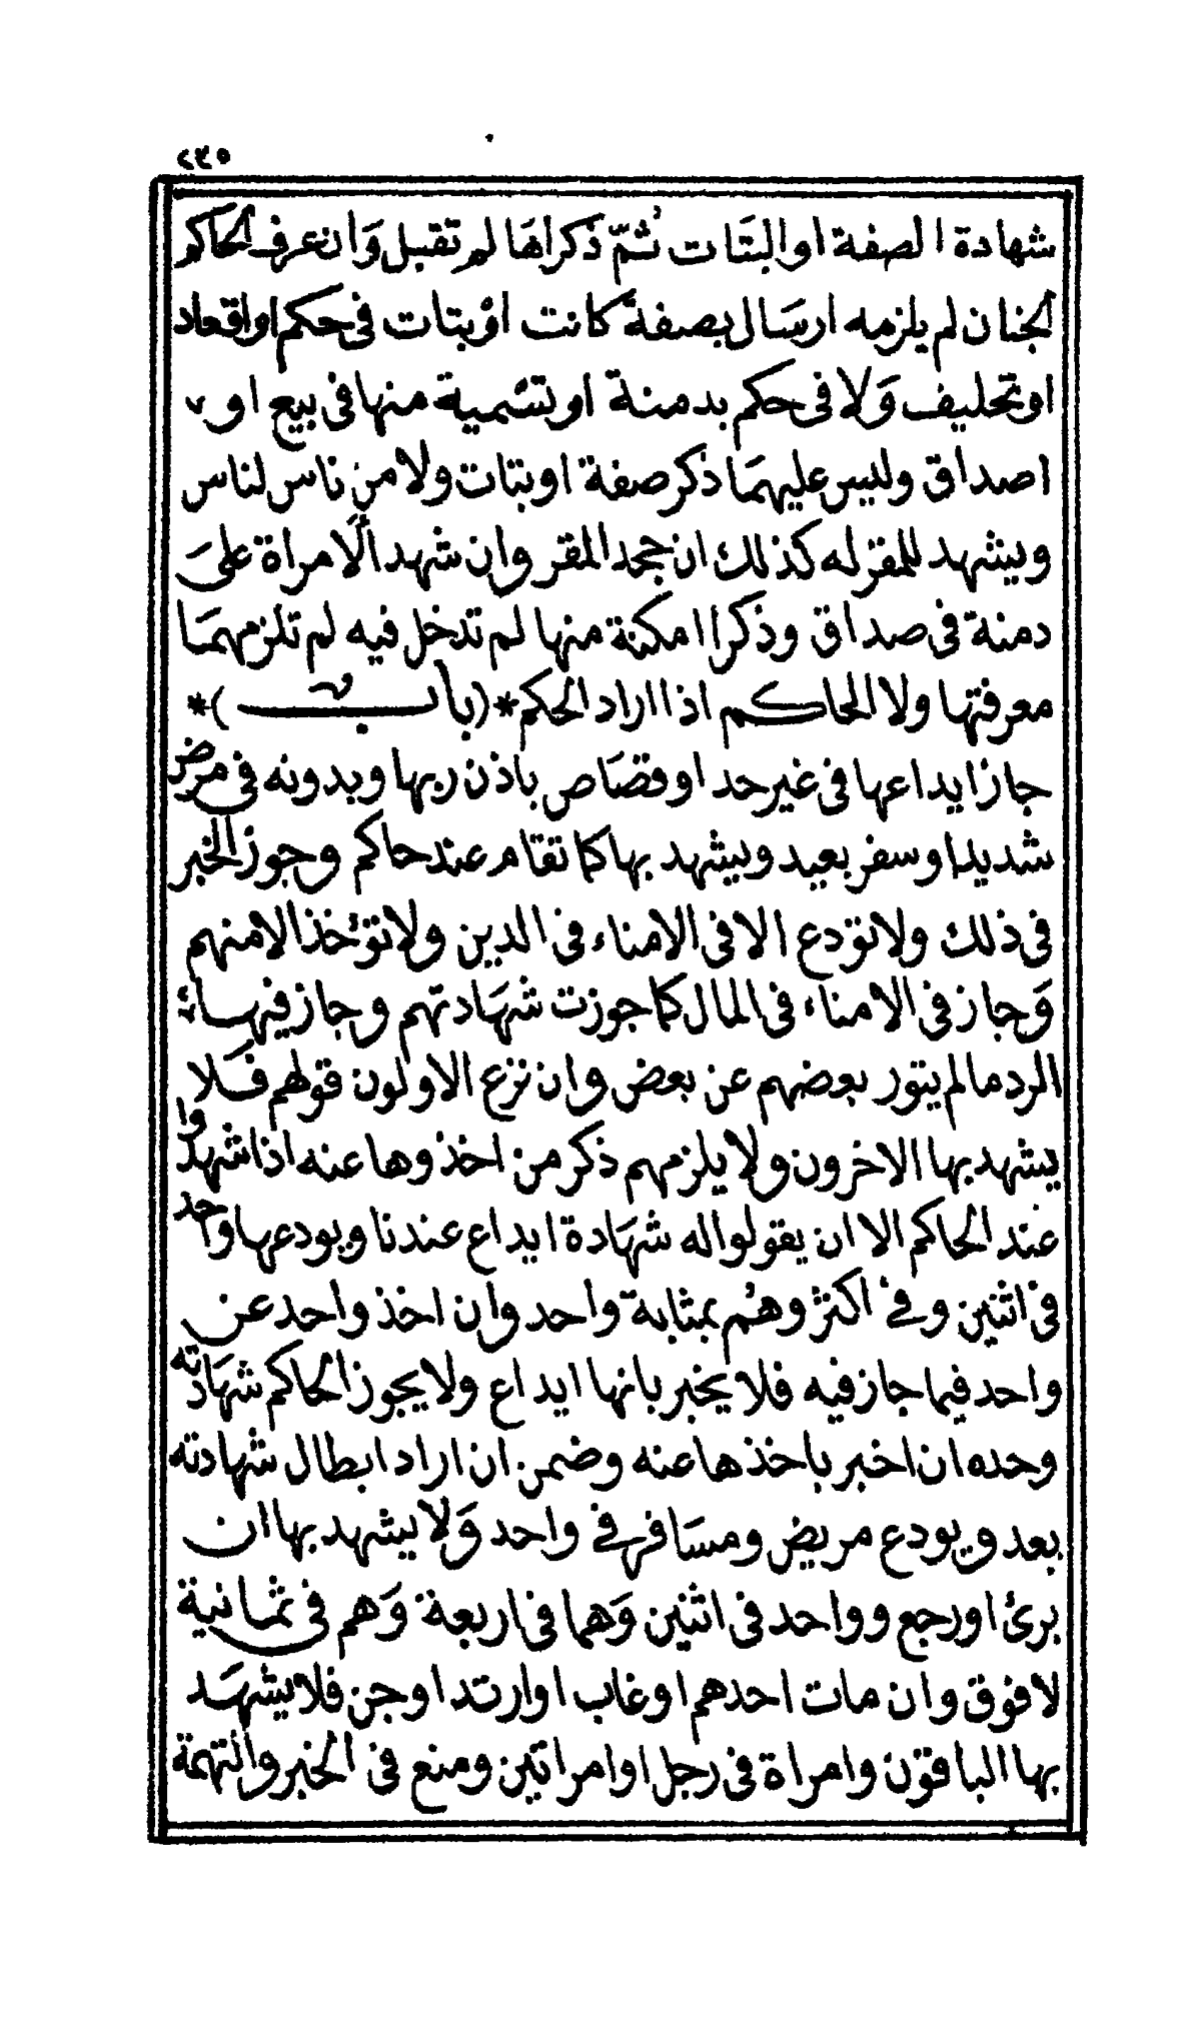 ٢٣٥
شهادة الصفة او البتات ثمّ ذكراها لم تقبل وَان عرف الحاكم
الجنان لم يلزمه ارسَال بصفة كانت اوْ بتات فى حكم او اقعاد
او تحليف وَلا فى حكم بدمنة او تسْمية منها فى بيع او
اصداق وليس عليهمَا ذكر صفة او بتات ولا من ناس لناس
ويشهد للمقر له كذلك ان جحد المقر وان شهد ألامراة علىَ
دمنة فى صداق وذكرا امكنة منها لم تدخل فيه لم تلزمهمَا
معرفتها ولا الحاكم اذا اراد الحكم *(باب)*
جاز ايداعها فى غير حد او قصَاص باذن ربها وبدونه فى مرض
شديد او سفر بعيد ويشهد بها كما تقام عند حاكم وجوز الخبر
فى ذلك ولا تؤدع الا فى الامناء فى الدين ولا تؤخذ الا منهم
وَجاز فى الامناء فى المال كما جوزت شهَادتهم وجاز فيها
الرد ما لم يتور بعضهم عن بعض وان نزع الاولون قولهم فَلا
يشهد بها الاخرون ولا يلزمهم ذكر من اخذوها عنه اذا شهدوا
عند الحاكم الا ان يقولوا له شهَادة ايداع عندنا ويودعها واحد
فى اثنين وفى اكثر وهُم بمثابة واحد وان اخذ واحد عن
واحد فيما جاز فيه فلا يخبر بانها ايداع ولا يجوز الحاكم شهَادته
وحده ان اخبر باخذها عنه وضمن ان اراد ابطال شهادته
بعد ويودع مريض ومسَافر فى واحد وَلا يشهد بها ان
برئ او رجع وواحد فى اثنين وَهما فى اربعة وَهم فى ثمَانية
لا فوق وان مات احدهم او غاب او ارتد او جن فلا يشهَد
بها الباقون وامراة فى رجل او امراتين ومنع فى الخبر والتهمة